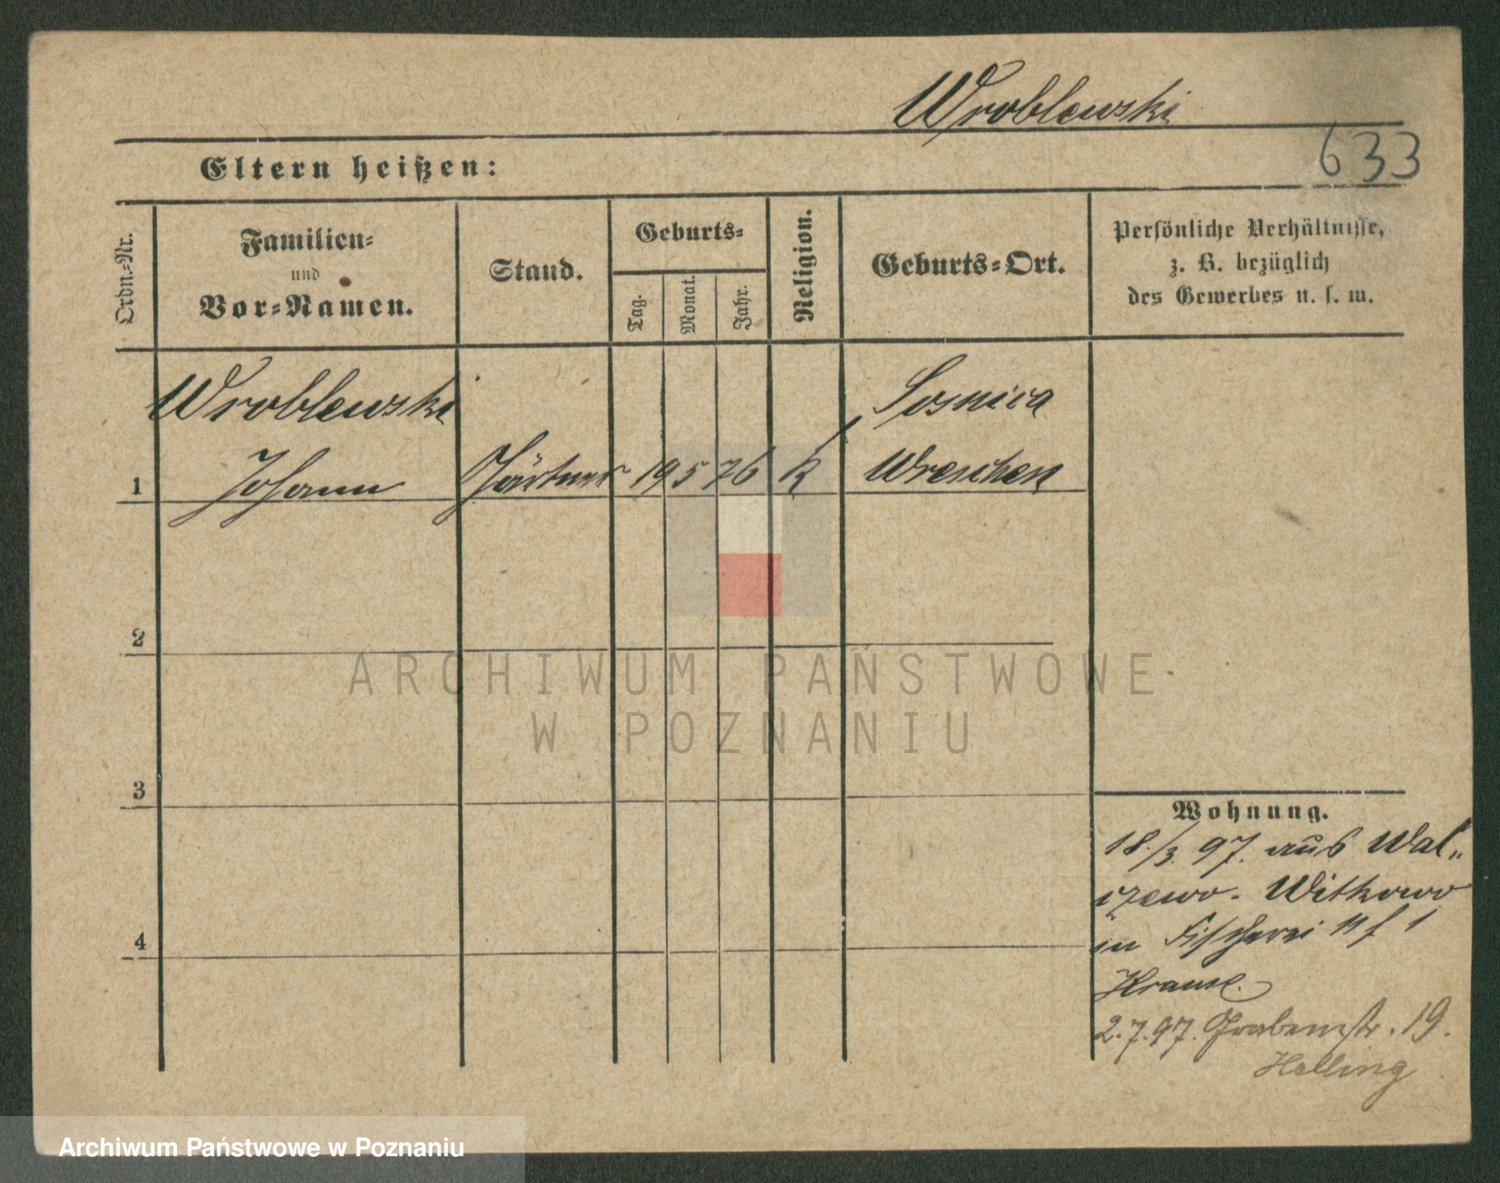 Wroblewski
633
Eltern heißen:
Ordn.-Nr.
Familien-
und
Vor-Namen.
Stand.
Geburts-
Tag.
Monat.
Jahr.
Religion.
Geburts-Ort.
Persönliche Verhältnisse,
z. B. bezüglich
des Gewerbes u. s. w.
Wroblewski Sosnica
1 Johann Gärtner 19 5 76 k Wreschen
2
3
4
Wohnung.
18./3. 97. aus Wal„
czewo. Witkowo
in Fischerei 11 f 1
Krause.
2.7.97. Grabenstr. 19.
Helling
ARCHIWUM PAŃSTWOWE
W POZNANIU
Archiwum Państwowe w Poznaniu